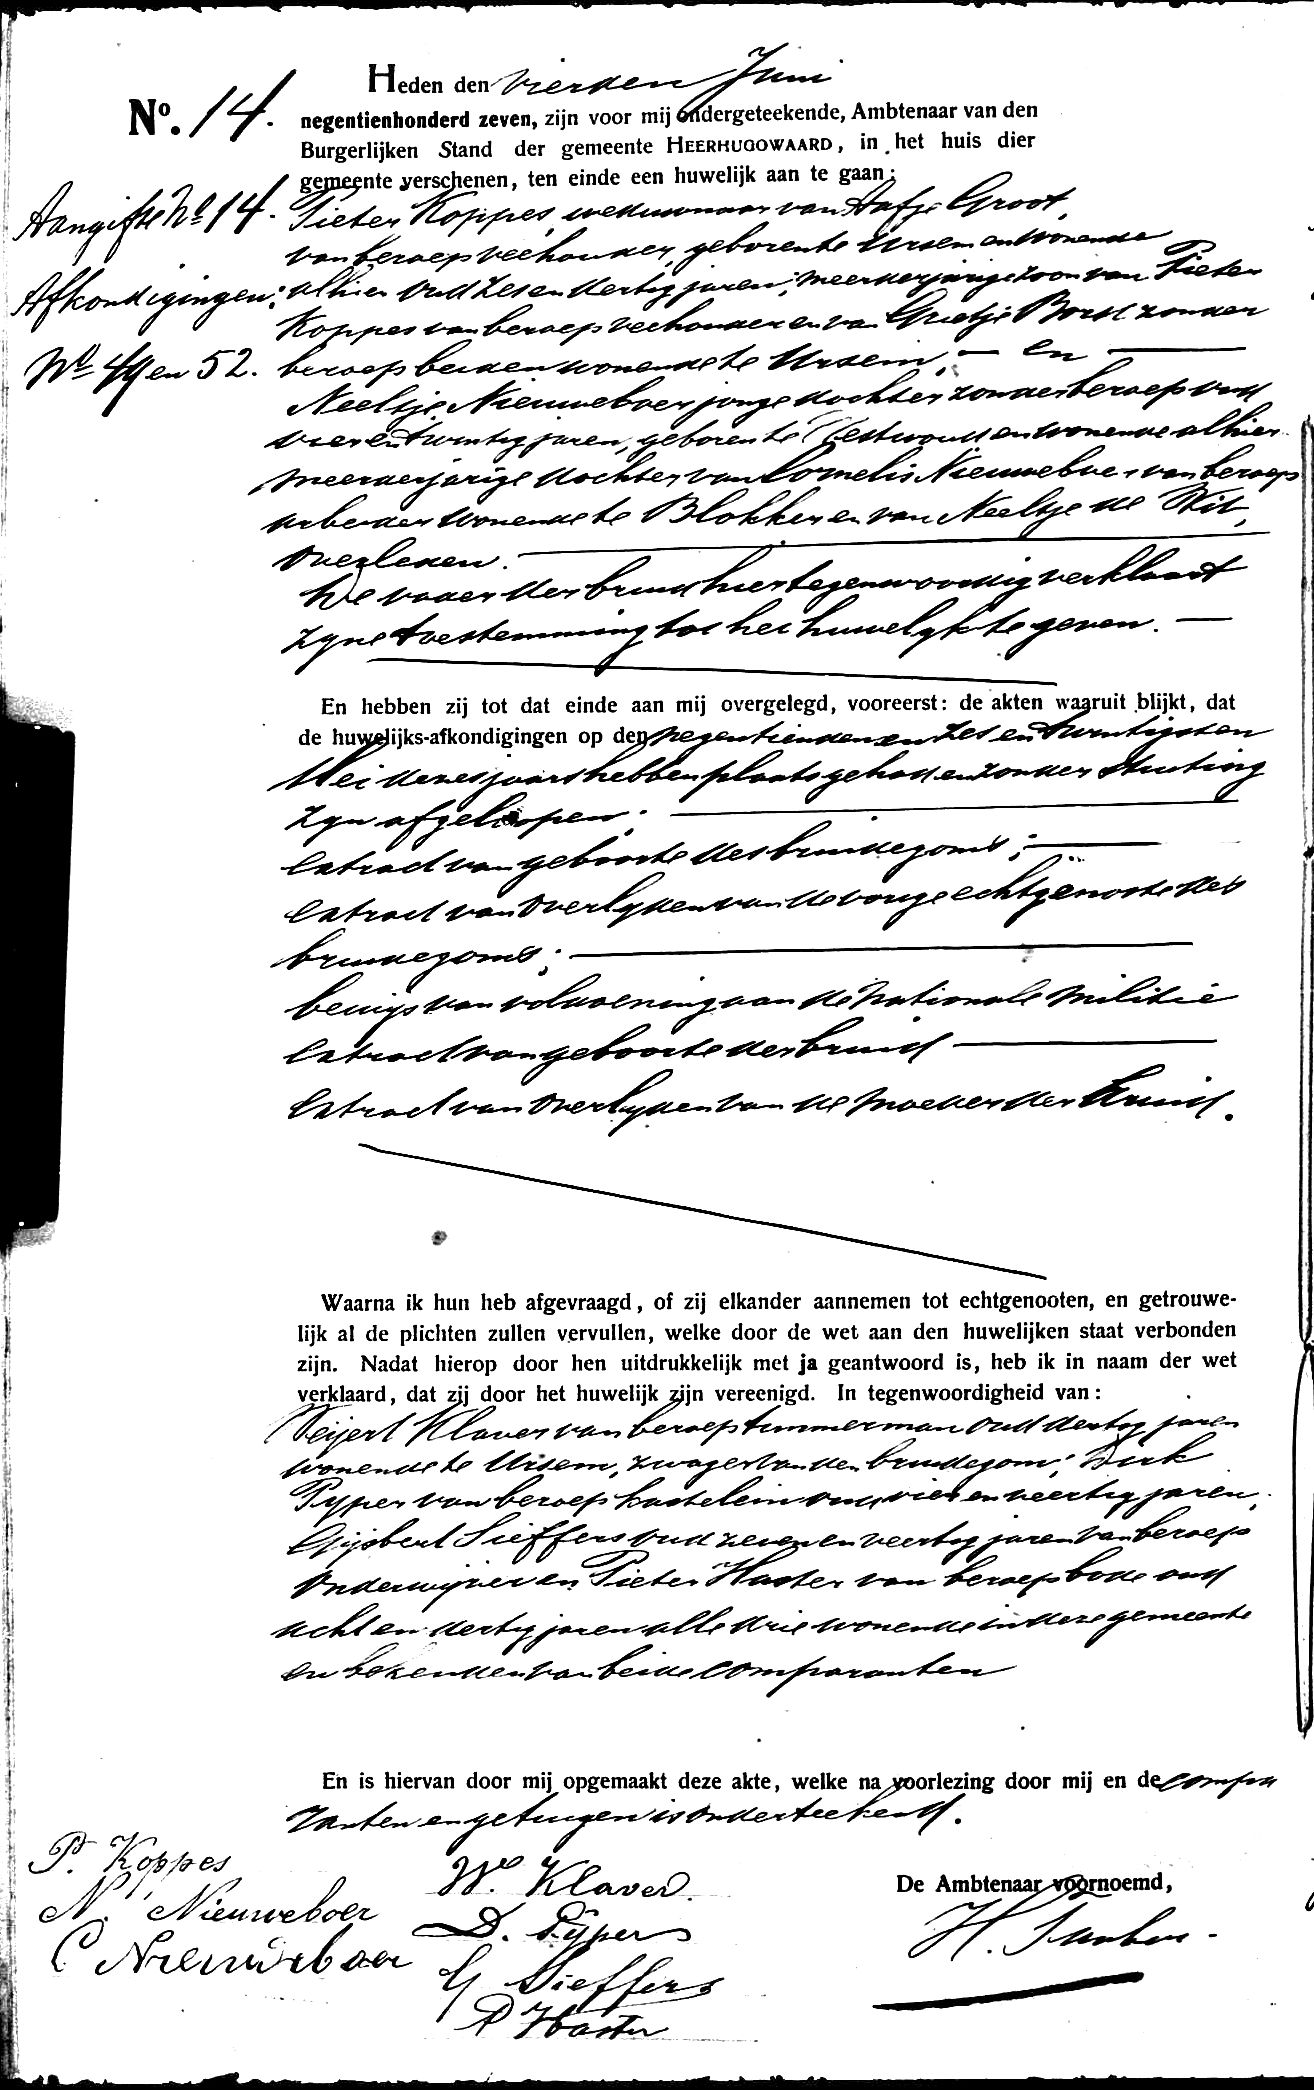 Heden den vierden Juni
No. 14.
negentienhonderd zeven, zijn voor mij ondergeteekende, Ambtenaar van den
Burgerlijken Stand der gemeente HEERHUGOWAARD, in het huis dier
gemeente verschenen, ten einde een huwelijk aan te gaan:
Aangifte No 14.
Pieter Koppes, weduwnaar van Aafje Groot,
van beroep veehouder, geboren te Ursem en wonende
Afkondigingen:
alhier oud zes en dertig jaren, meerderjarige zoon van Pieter
Koppes van beroep veehouder en van Grietje Borst zonder
No 49 en 52.
beroep beiden wonende te Ursem, — en —
Neeltje Nieuweboer jonge dochter zonder beroep oud
vier en twintig jaren, geboren te Westwoud en wonende alhier
meerderjarige dochter van Cornelis Nieuweboer van beroep
arbeider wonende te Blokker en van Neeltje de Wit,
overleden.
De vader der bruid hier tegenwoordig verklaart
zyne toestemming tot het huwelyk te geven. —
En hebben zij tot dat einde aan mij overgelegd, vooreerst: de akten waaruit blijkt, dat
de huwelijks-afkondigingen op den negentienden en zes en twintigsten
Mei dezes jaars hebben plaats gehad en zonder stuiting
zyn afgeloopen;
Extract van geboorte des bruidegoms;
Extract van overlyden van de vorige echtgenoote des
bruidegoms;
bewijs van voldoening aan de Nationale Militie
Extract van geboorte der bruid
Extract van overlyden van de moeder der bruid.
Waarna ik hun heb afgevraagd, of zij elkander aannemen tot echtgenooten, en getrouwe-
lijk al de plichten zullen vervullen, welke door de wet aan den huwelijken staat verbonden
zijn. Nadat hierop door hen uitdrukkelijk met ja geantwoord is, heb ik in naam der wet
verklaard, dat zij door het huwelijk zijn vereenigd. In tegenwoordigheid van:
Weijert Klaver van beroep timmerman oud dertig jaren
wonende te Ursem, zwager van den bruidegom; Dirk
Pyper van beroep kastelein oud vier en veertig jaren,
Gijsbert Sieffers oud zeven en veertig jaren van beroep
Onderwijzer en Pieter Haster van beroep bode oud
acht en dertig jaren alle drie wonende in deze gemeente
en bekenden van beide comparanten
En is hiervan door mij opgemaakt deze akte, welke na voorlezing door mij en de compa
ranten en getuigen is onderteekend.
P. Koppes
N. Nieuweboer
C Nieuweboer
We. Klaver.
D. Pijper
G Sieffers
P Haster
De Ambtenaar voornoemd,